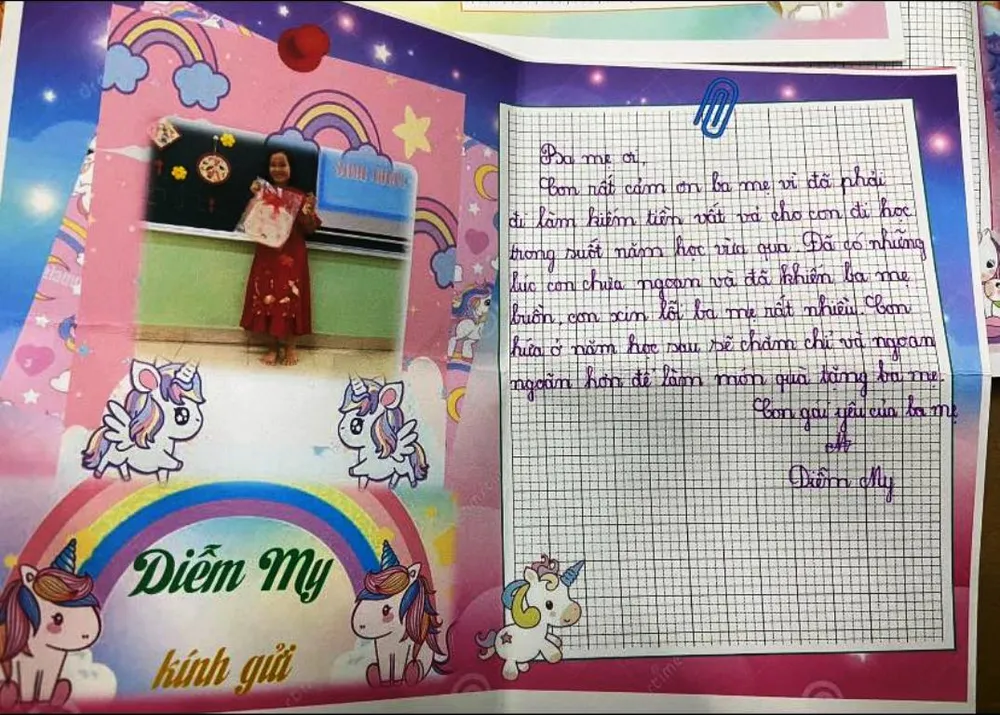 Diễm My
kính gửi
Ba mẹ ơi
Con rất cảm ơn ba mẹ vì đã phải
đi làm kiếm tiền vất vả cho con đi học
trong suốt năm học vừa qua. Đã có những
lúc con chưa ngoan và đã khiến ba mẹ
buồn, con xin lỗi ba mẹ rất nhiều. Con
hứa ở năm học sau sẽ chăm chỉ và ngoan
ngoãn hơn để làm món quà tặng ba mẹ.
Con gái yêu của ba mẹ
Diễm My